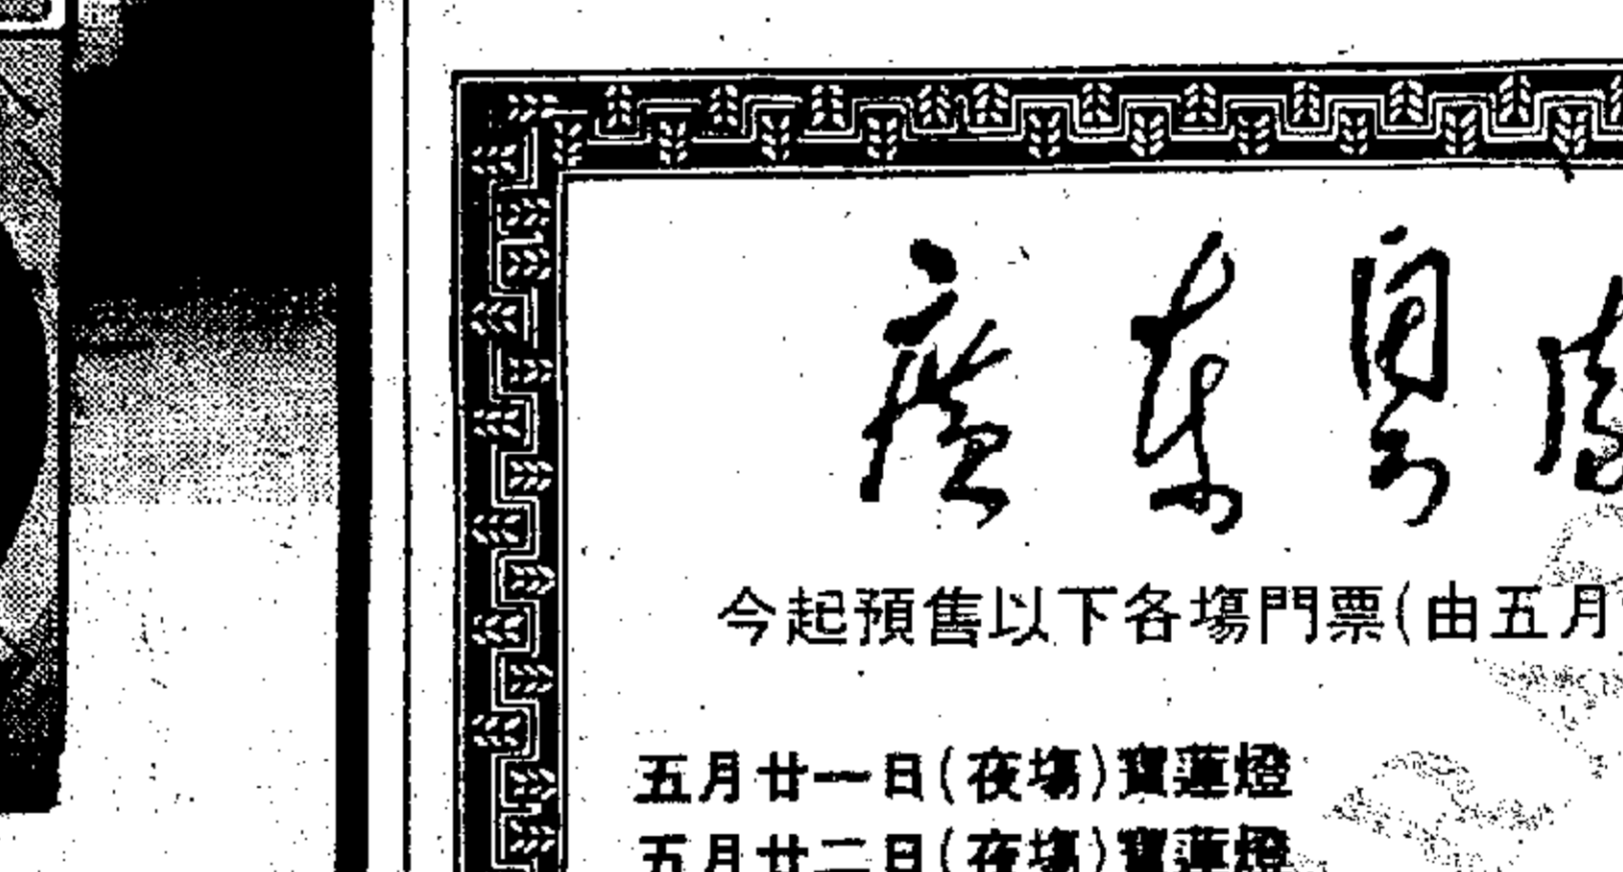 廣東粵
今起預售以下各場門票(由五月
五月廿一日(夜場)寶蓮燈
五月廿二日(夜場)寶蓮燈